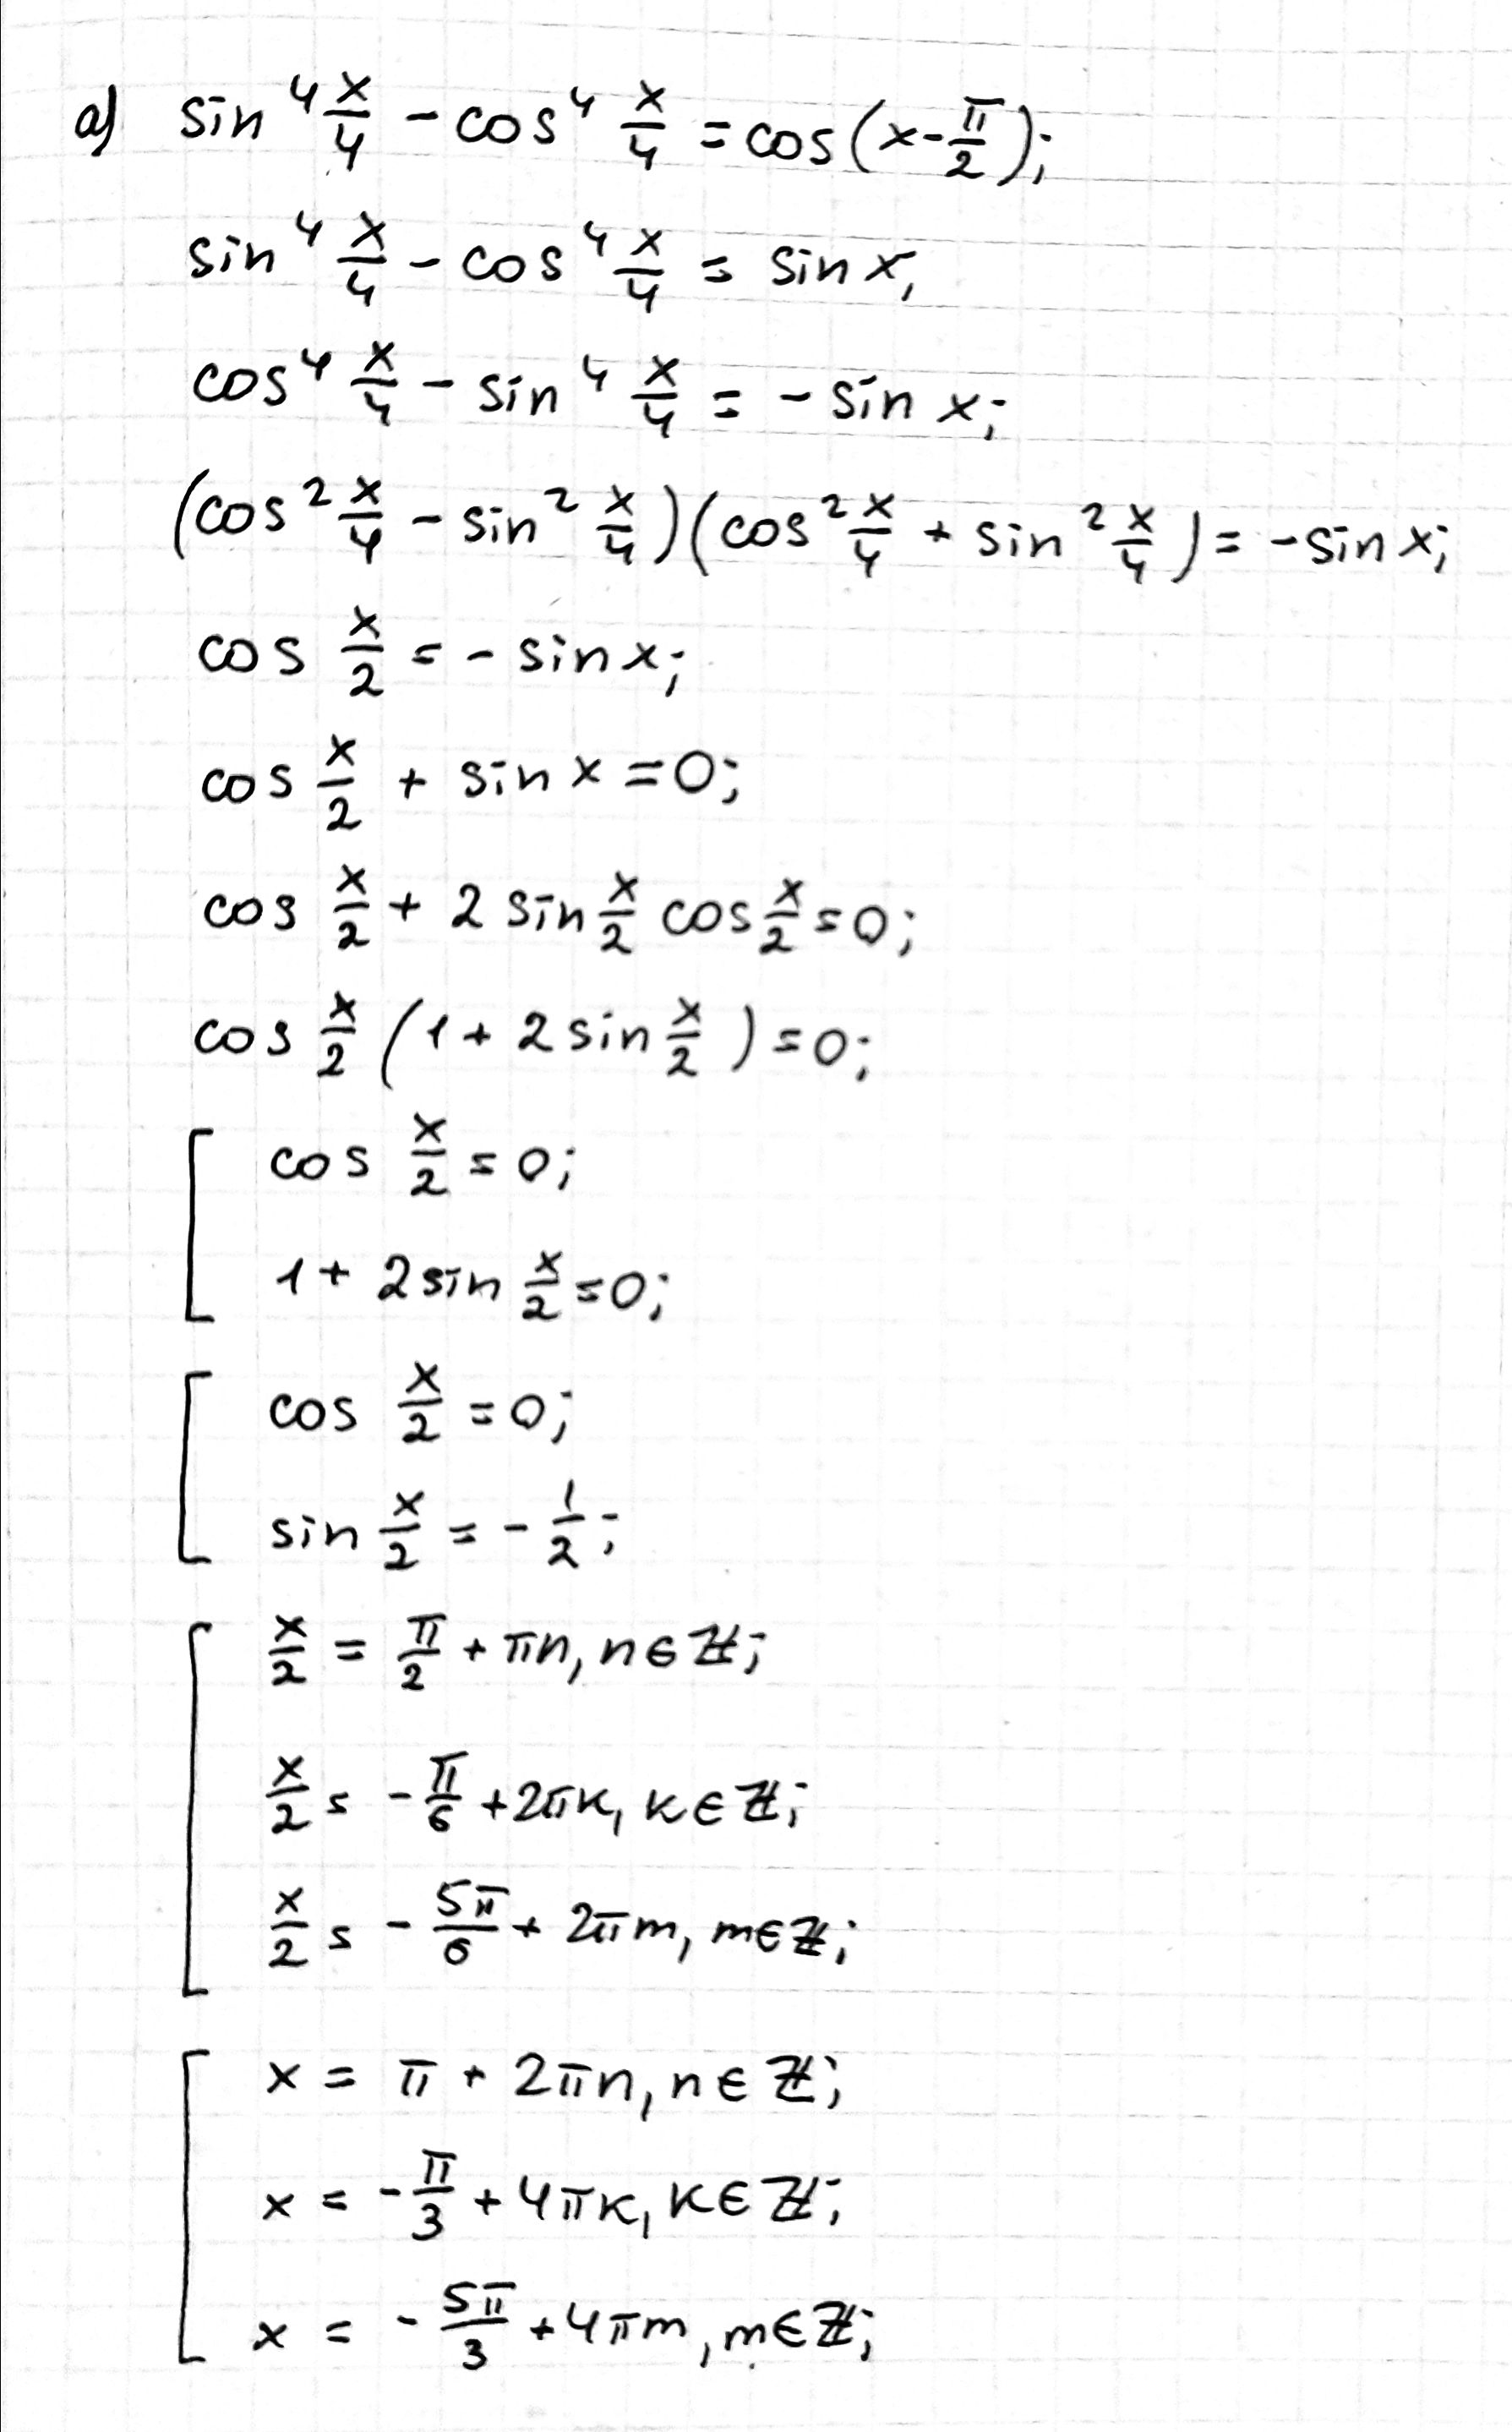 a) sin⁴ x/4 - cos⁴ x/4 = cos(x - π/2);
sin⁴ x/4 - cos⁴ x/4 = sin x;
cos⁴ x/4 - sin⁴ x/4 = - sin x;
(cos² x/4 - sin² x/4)(cos² x/4 + sin² x/4) = - sin x;
cos x/2 = - sin x;
cos x/2 + sin x = 0;
cos x/2 + 2 sin x/2 cos x/2 = 0;
cos x/2 (1 + 2 sin x/2) = 0;
[ cos x/2 = 0;
1 + 2 sin x/2 = 0;
[ cos x/2 = 0;
sin x/2 = - 1/2;
[ x/2 = π/2 + πn, n ∈ ℤ;
x/2 = - π/6 + 2πk, k ∈ ℤ;
x/2 = - 5π/6 + 2πm, m ∈ ℤ;
[ x = π + 2πn, n ∈ ℤ;
x = - π/3 + 4πk, k ∈ ℤ;
x = - 5π/3 + 4πm, m ∈ ℤ;